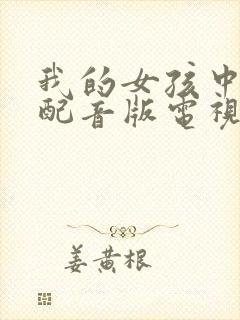 我的女孩中
配音版電視
姜黄根